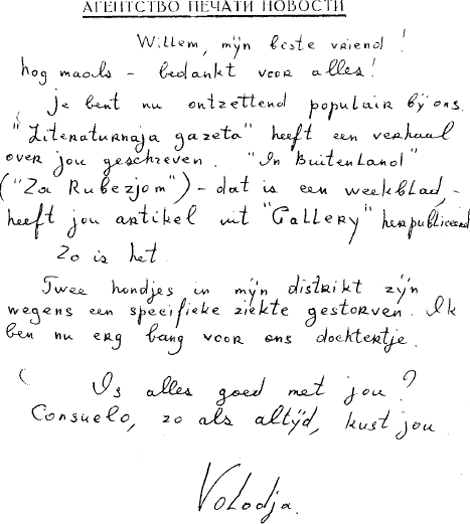 АГЕНТСТВО ПЕЧАТИ НОВОСТИ
Willem, mijn beste vriend!
hog maals - bedankt voor alles!
Je bent nu ontzettend populair bij ons.
"Literaturnaja gazeta" heeft een verhaal
over jou geschreven. "In Buitenland"
("Za Rubezjom") - dat is een weekblad, -
heeft jou artikel uit "Gallery" herpubliceerd
Zo is het.
Twee hondjes in mijn distrikt zijn
wegens een specifieke ziekte gestorven. Ik
ben nu erg bang voor ons dochtertje.
Is alles goed met jou?
Consuelo, zo als altijd, kust jou
Volodja.